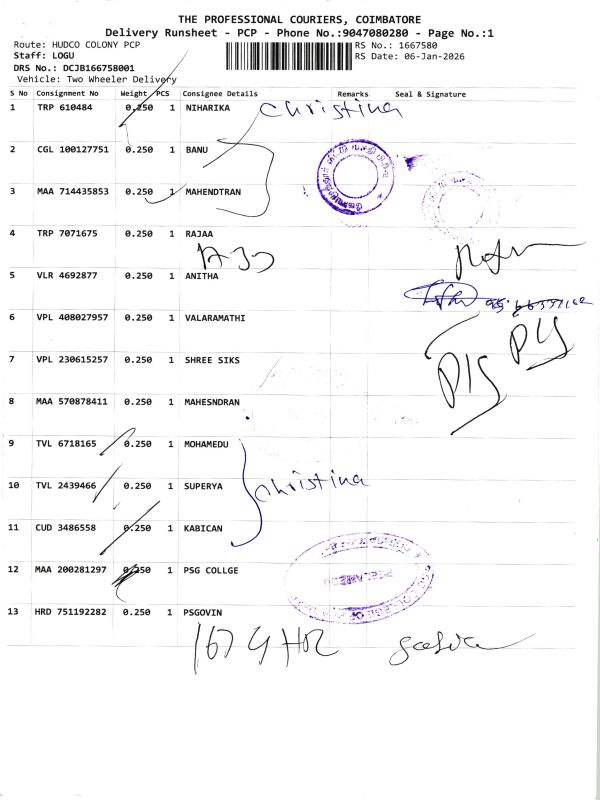 THE PROFESSIONAL COURIERS, COIMBATORE
Delivery Runsheet - PCP - Phone No.:9047080280 - Page No.:1
Route: HUDCO COLONY PCP RS No.: 1667580
Staff: LOGU RS Date: 06-Jan-2026
DRS No.: DCJB166758001
Vehicle: Two Wheeler Delivery
S No Consignment No Weight PCS Consignee Details Remarks Seal & Signature
1 TRP 610484 0.250 1 NIHARIKA Christina
2 CGL 100127751 0.250 1 BANU
3 MAA 714435853 0.250 1 MAHENDTRAN
4 TRP 7071675 0.250 1 RAJAA
5 VLR 4692877 0.250 1 ANITHA
6 VPL 408027957 0.250 1 VALARAMATHI
7 VPL 230615257 0.250 1 SHREE SIKS
8 MAA 570878411 0.250 1 MAHESNDRAN
9 TVL 6718165 0.250 1 MOHAMEDU
10 TVL 2439466 0.250 1 SUPERYA
Christina
11 CUD 3486558 0.250 1 KABICAN
12 MAA 200281297 0.250 1 PSG COLLGE
13 HRD 751192282 0.250 1 PSGOVIN